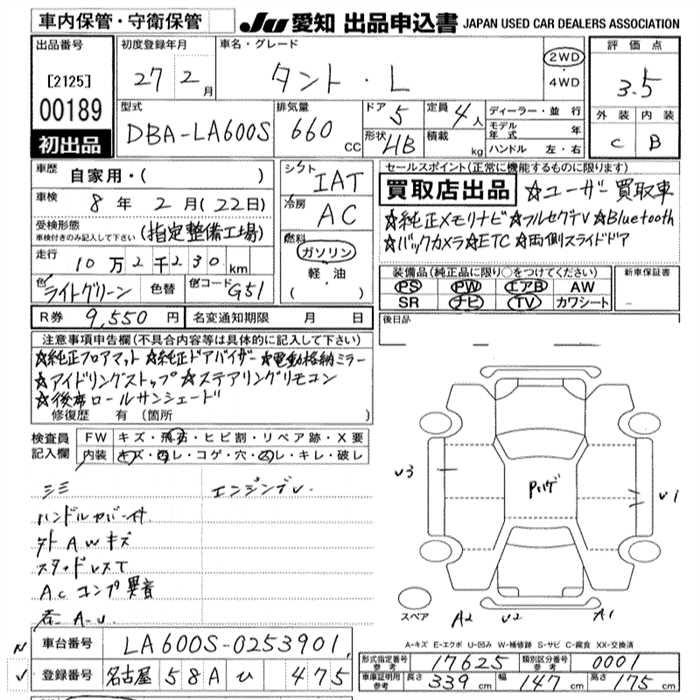 車内保管・守衛保管
JU 愛知 出品申込書 JAPAN USED CAR DEALERS ASSOCIATION
出品番号
[2125]
00189
初出品
初度登録年月
27 2月
車名・グレード
タント・L
2WD
・
4WD
評価点
3.5
外装 内装
C B
型式
DBA-LA600S
排気量
660 CC
ドア 5
形状 HB
定員 4人
積載 kg
ディーラー・並行
モデル年式 年
ハンドル 左・右
車歴
自家用・( )
車検
8年 2月(22日)
受検形態
車検付きのみ記入して下さい
(指定整備工場)
走行
10万2千230km
色 ライトグリーン 色替 色コード G51
R券 9,550円 名変通知期限 月 日
シフト
IAT
冷房
AC
燃料
ガソリン
・
軽・油
( )
セールスポイント(正常に機能するものに限ります)
買取店出品 ☆ユーザー買取車
☆純正メモリナビ☆フルセグTV☆Bluetooth
☆バックカメラ☆ETC☆両側スライドドア
装備品(純正品に限り○をつけてください)
PS PW エアB AW
SR ナビ TV カワシート
新車保証書
後日品
注意事項申告欄(不具合内容等は具体的に記入して下さい)
☆純正フロアマット ☆純正ドアバイザー ☆電動格納ミラー
☆アイドリングストップ ☆ステアリングリモコン
☆後席ロールサンシェード
修復歴 有 (箇所
検査員
記入欄
FW キズ・飛石・ヒビ割・リペア跡・X要
内装 キズ・汚レ・コゲ・穴・スレ・キレ・破レ
シミ エンジンデU.
ハンドルカバー付
外AWキズ
スタッドレスT
Acコンプ異音
A-U
U3
Pハゲ
U1
スペア A2 U2 A1
A-キズ E-エクボ U-凹み W-補修跡 S-サビ C-腐食 XX-交換済
車台番号 LA600S-0253901
登録番号 名古屋 58A ひ 475
形式指定番号
参考
17625
類別区分番号
参考
0001
車庫証明用
参考
長さ 339cm 幅 147cm 高さ 175cm